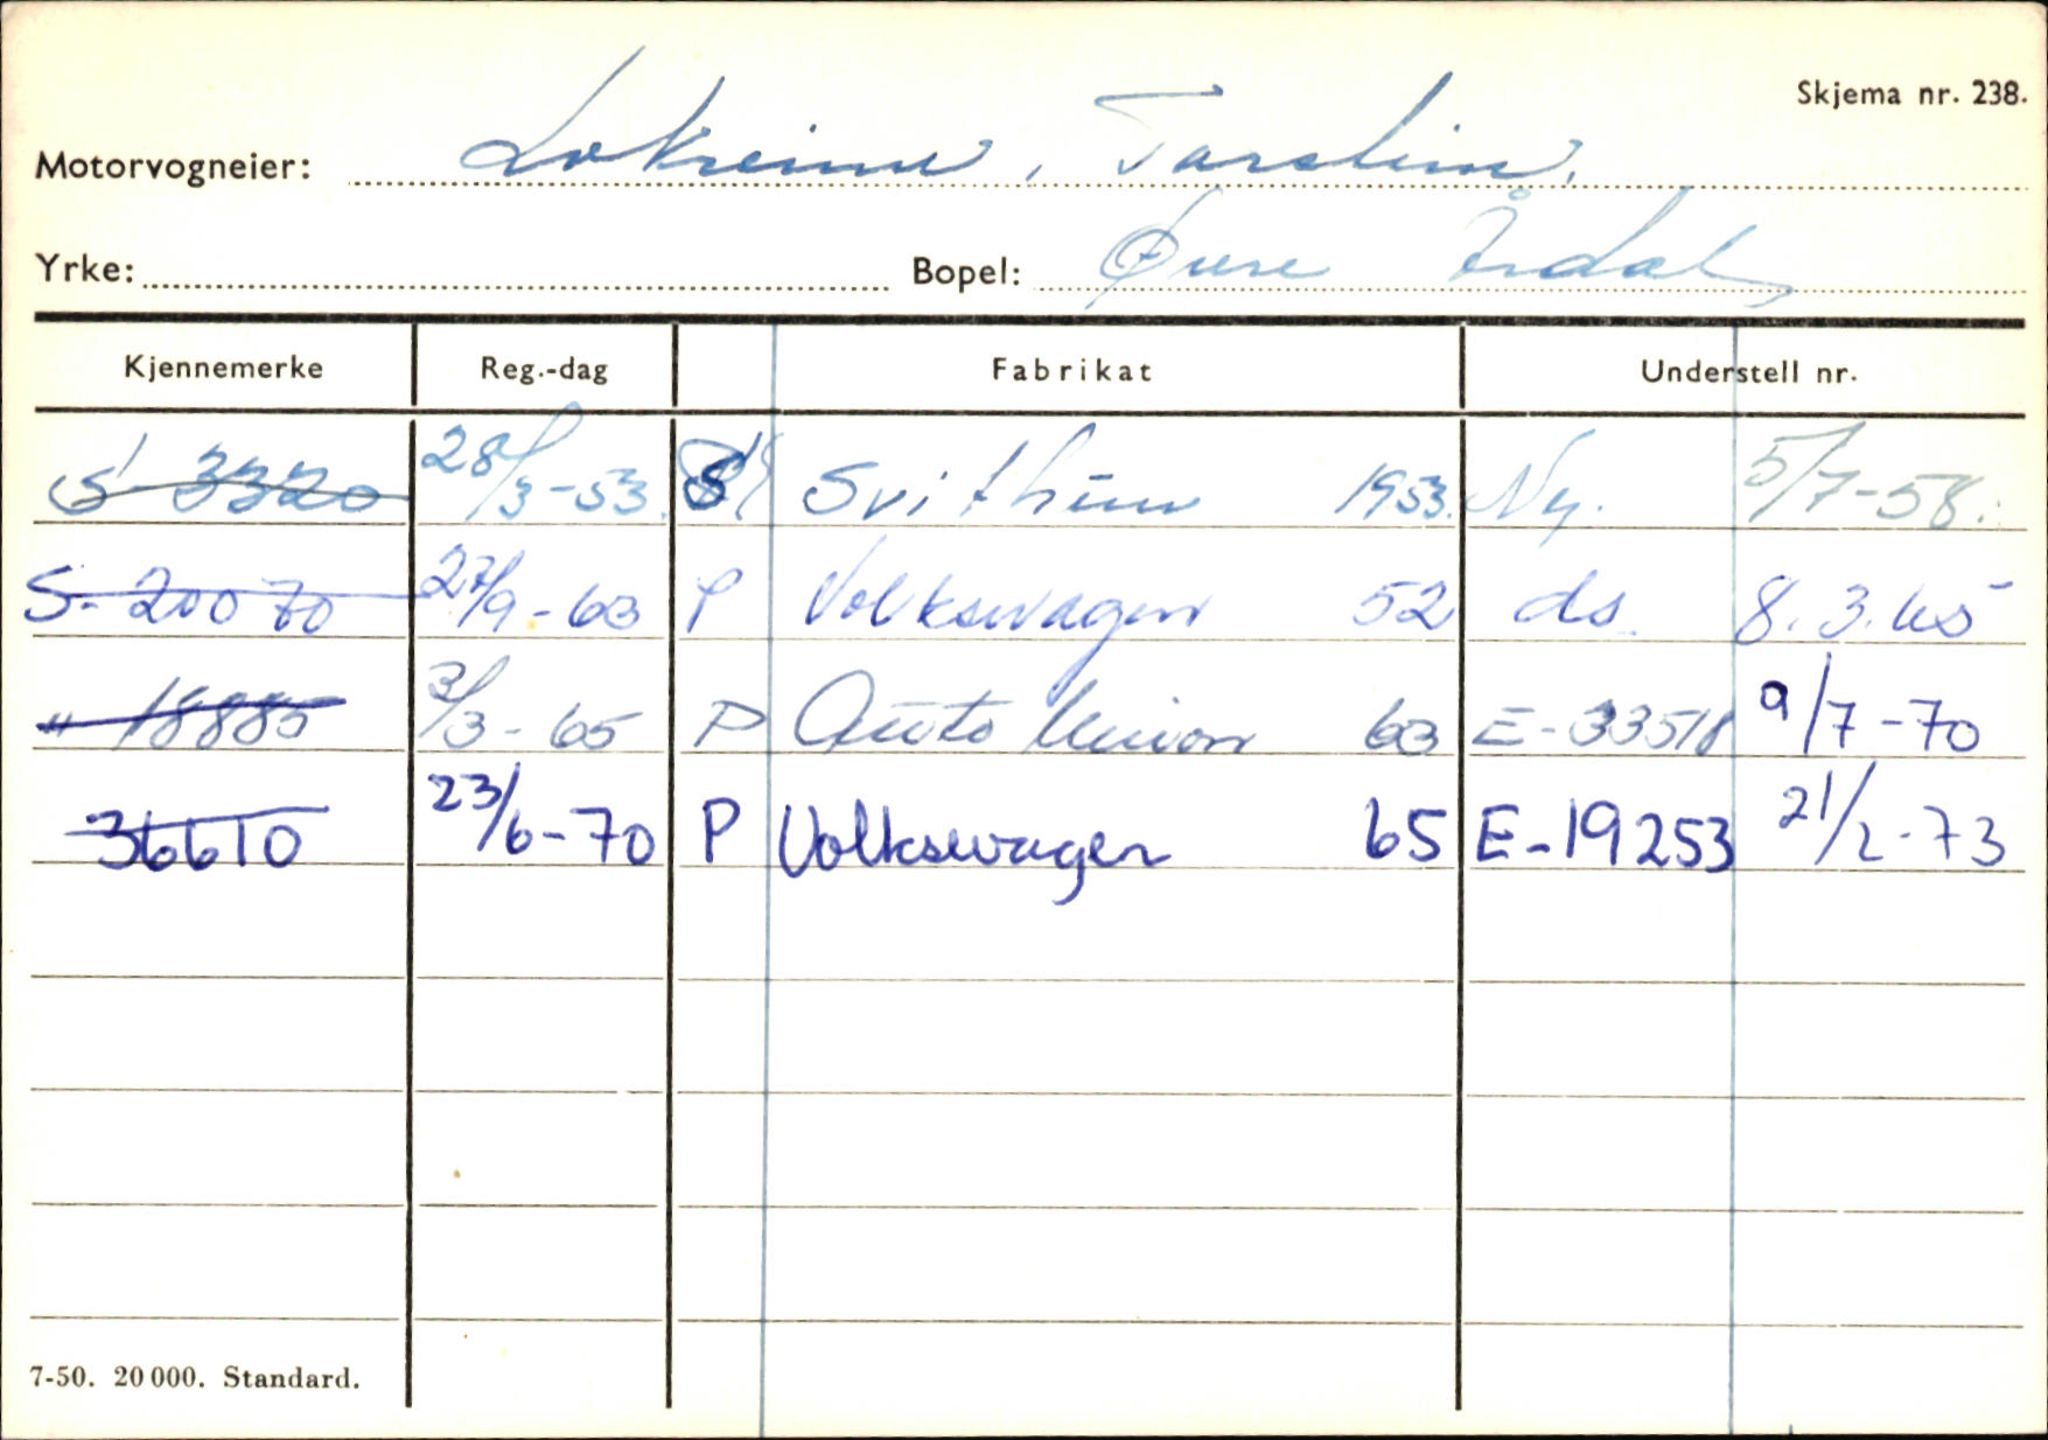 Skjema nr. 238.
Motorvogneier: Lokreim, Torstein.
Yrke: Bopel: Øvre Årdal
Kjennemerke Reg.-dag Fabrikat Understell nr.
S-3320 28/3-53. Svithun 1953. Ny. 5/7-58.
S-20070 27/9-63 P Volkswagen 52 ds. 8.3.65
" 18885 3/3-65 P Auto Union 63 E-33518 9/7-70
36610 23/6-70 P Volkswagen 65 E-19253 21/2-73
7-50. 20 000. Standard.